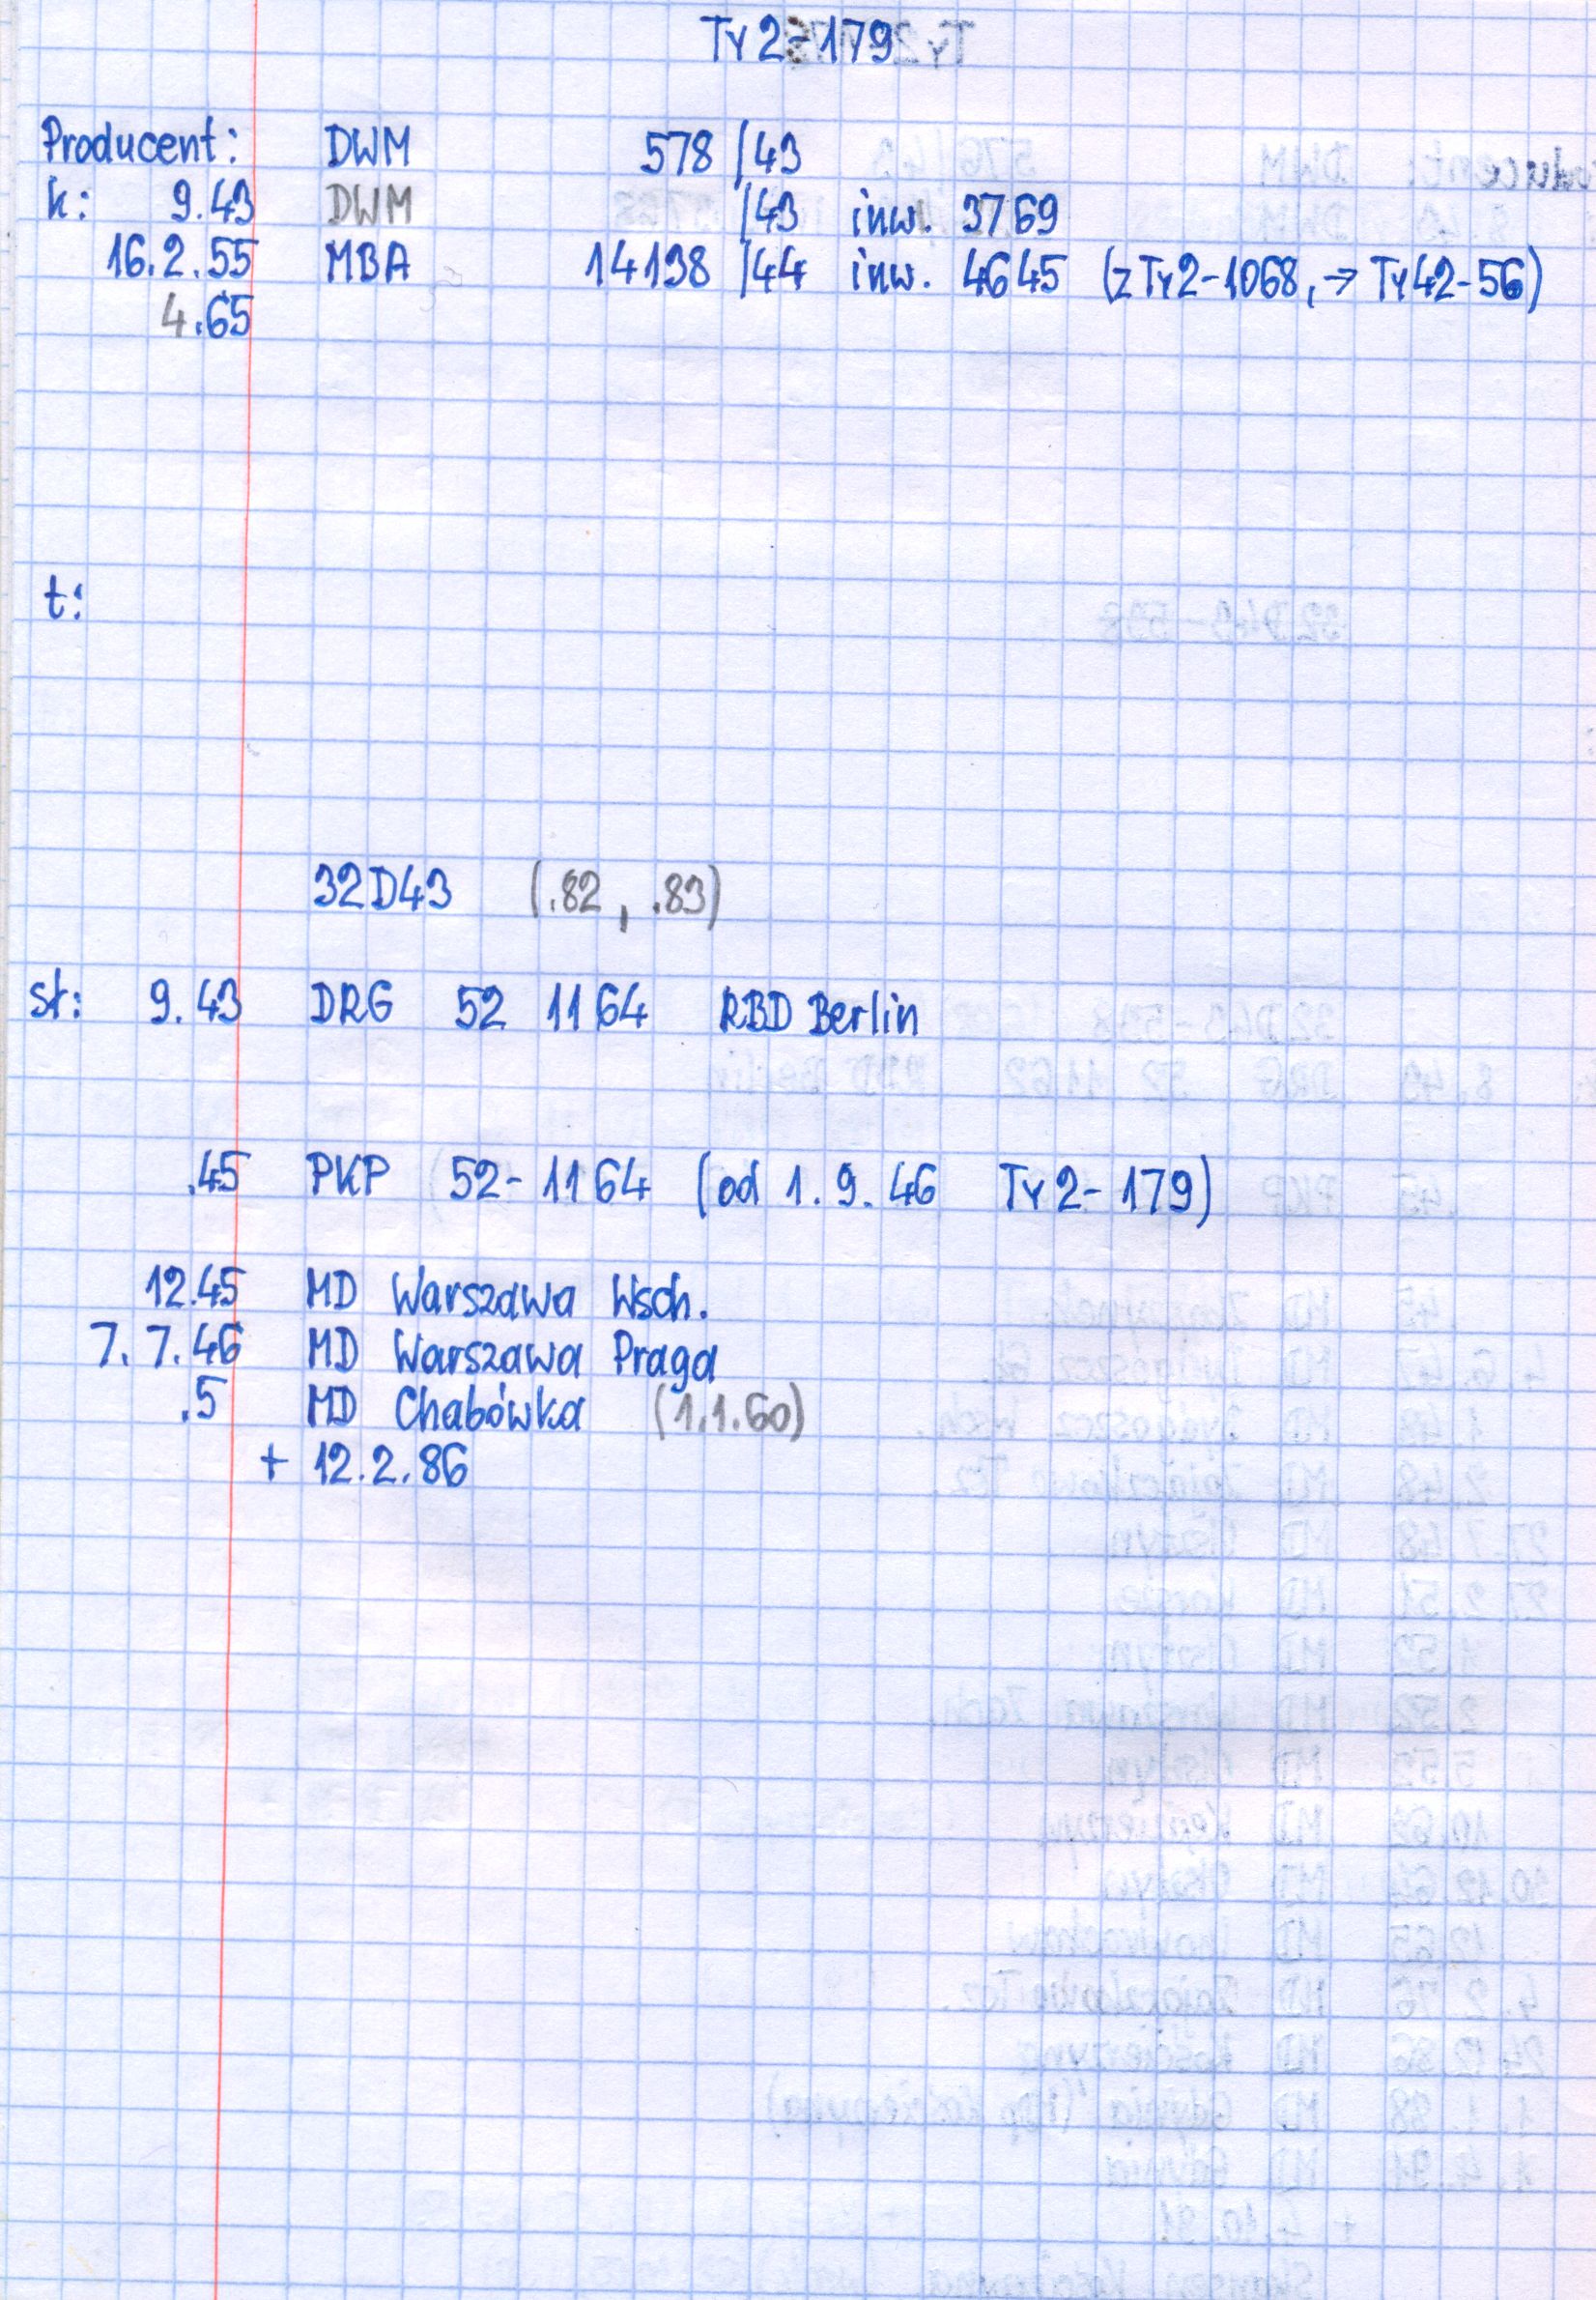 Ty2-179
Producent: DWM 578 /43
k: 9.43 DWM /43 inw. 3769
16.2.55 MBA 14198 /44 inw. 4645 (z Ty2-1068, → Ty42-56)
4.65
t:
32D43 (.82, .83)
st: 9.43 DRG 52 1164 RBD Berlin
.45 PKP 52-1164 (od 1.9.46 Ty2-179)
12.45 MD Warszawa Wsch.
7.7.46 MD Warszawa Praga
.5 MD Chabówka (1.1.60)
+ 12.2.86